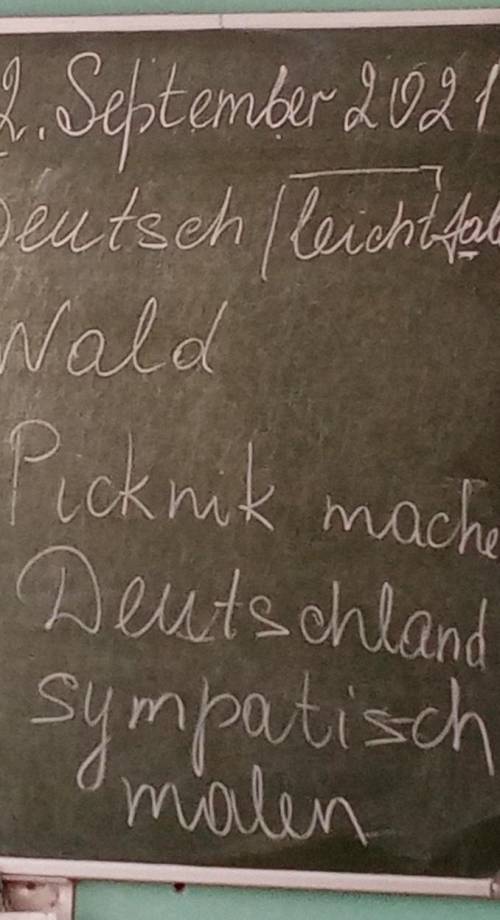 2. September 2021
Deutsch / leicht fal
Wald
Picknik mache
Deutschland
sympatisch
malen